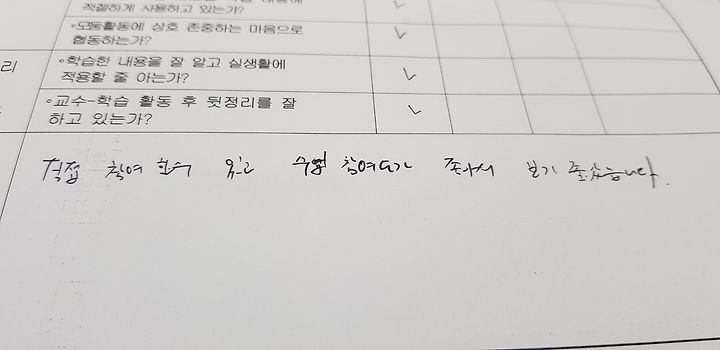 적절하게 사용하고 있는가?
◦모둠활동에 상호 존중하는 마음으로
협동하는가?
리
◦학습한 내용을 잘 알고 실생활에
적용할 줄 아는가?
◦교수-학습 활동 후 뒷정리를 잘
하고 있는가?
직접 참여 할수 있고 수업 참여도가 좋아서 보기 좋았습니다.